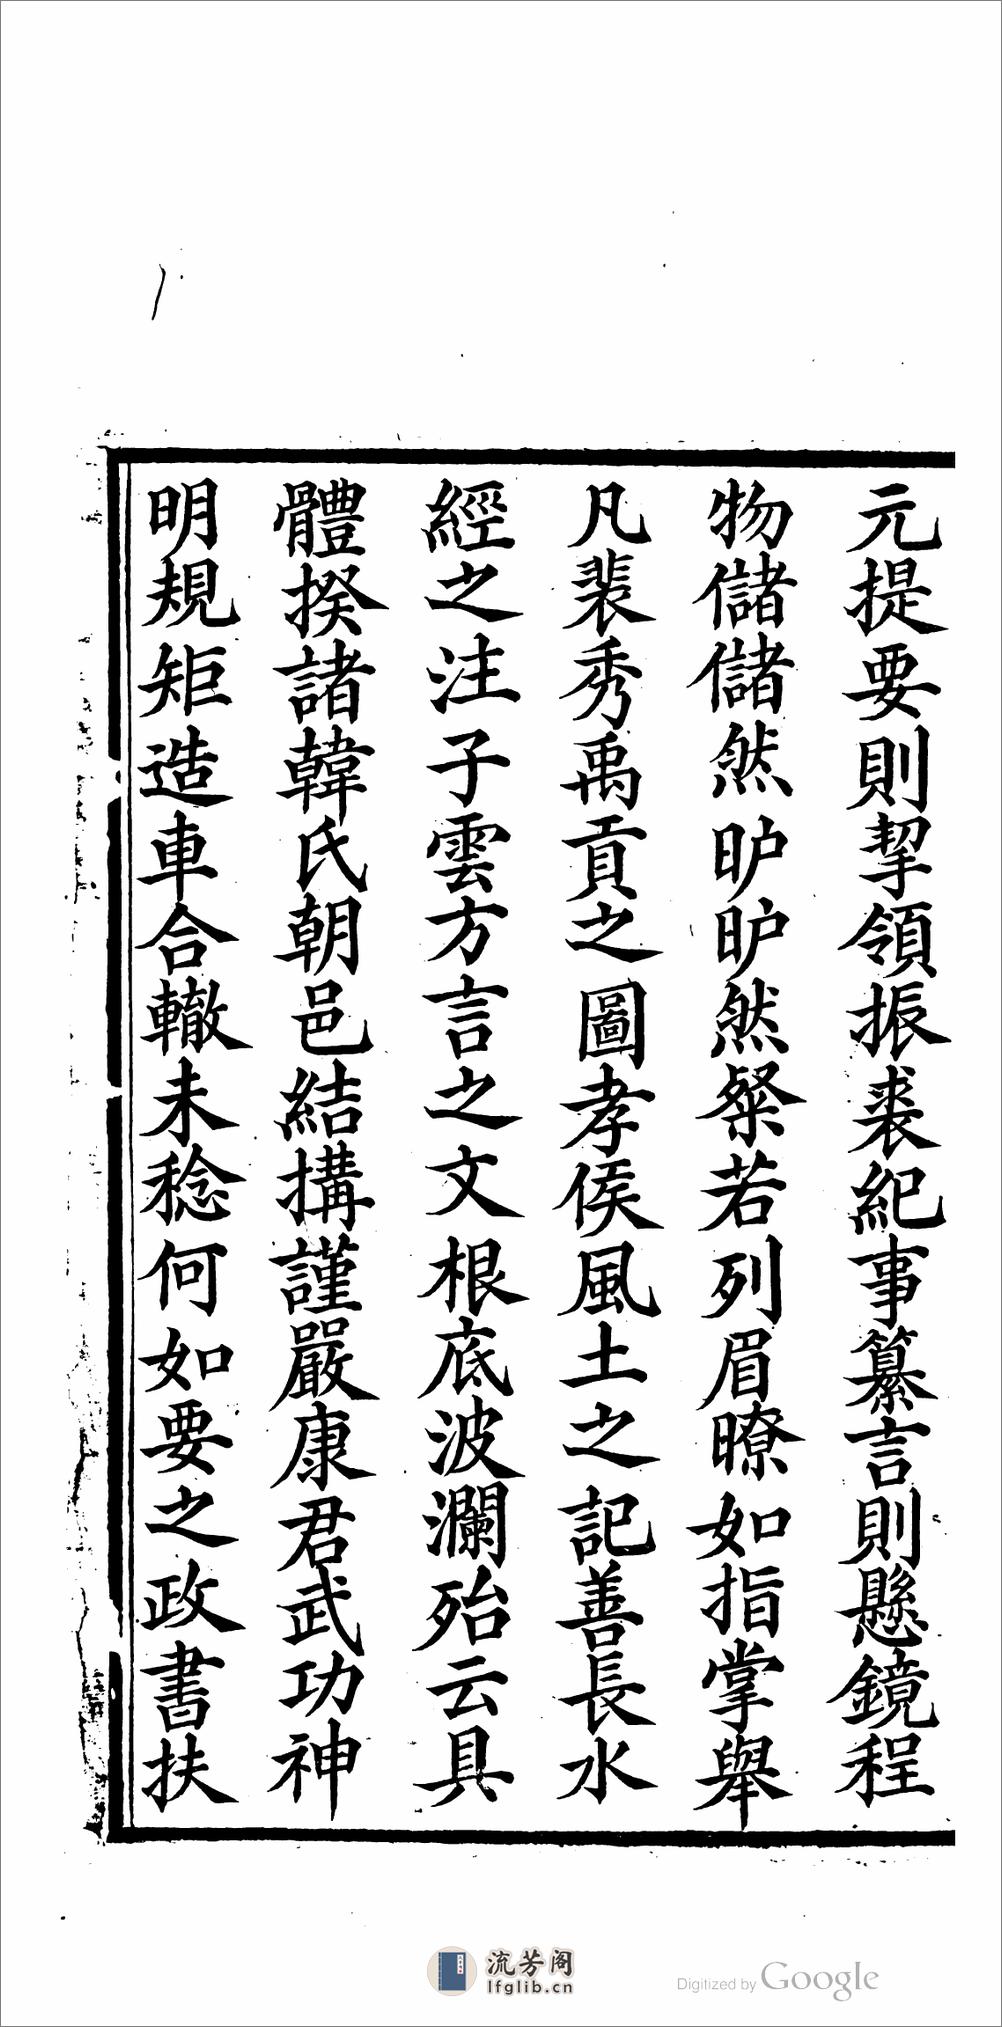 元提要則挈領振裘紀事纂言則懸鏡程
物儲儲然昈昈然粲若列眉瞭如指掌舉
凡裴秀禹貢之圖孝侯風土之記善長水
經之注子雲方言之文根底波瀾殆云具
體揆諸韓氏朝邑結搆謹嚴康君武功神
明規矩造車合轍未稔何如要之政書扶
流芳阁
lfglib.cn
Digitized by Google